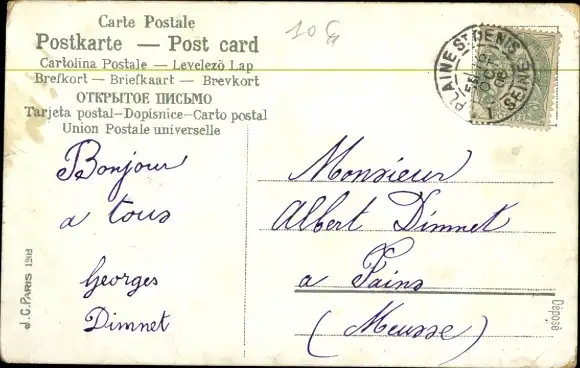 Carte Postale
Postkarte — Post card
Cartolina Postale — Levelezö Lap
Brefkort — Briefkaart — Brevkort
ОТКРЫТОЕ ПИСЬМО
Tarjeta postal—Dopisnice—Carto postal
Union Postale universelle
10
PLAINE ST DENIS
SEINE
Bonjour
a tous
Georges
Dimnet
Monsieur
Albert Dimnet
a Fains
(Meuse)
J.C. PARIS
Déposé